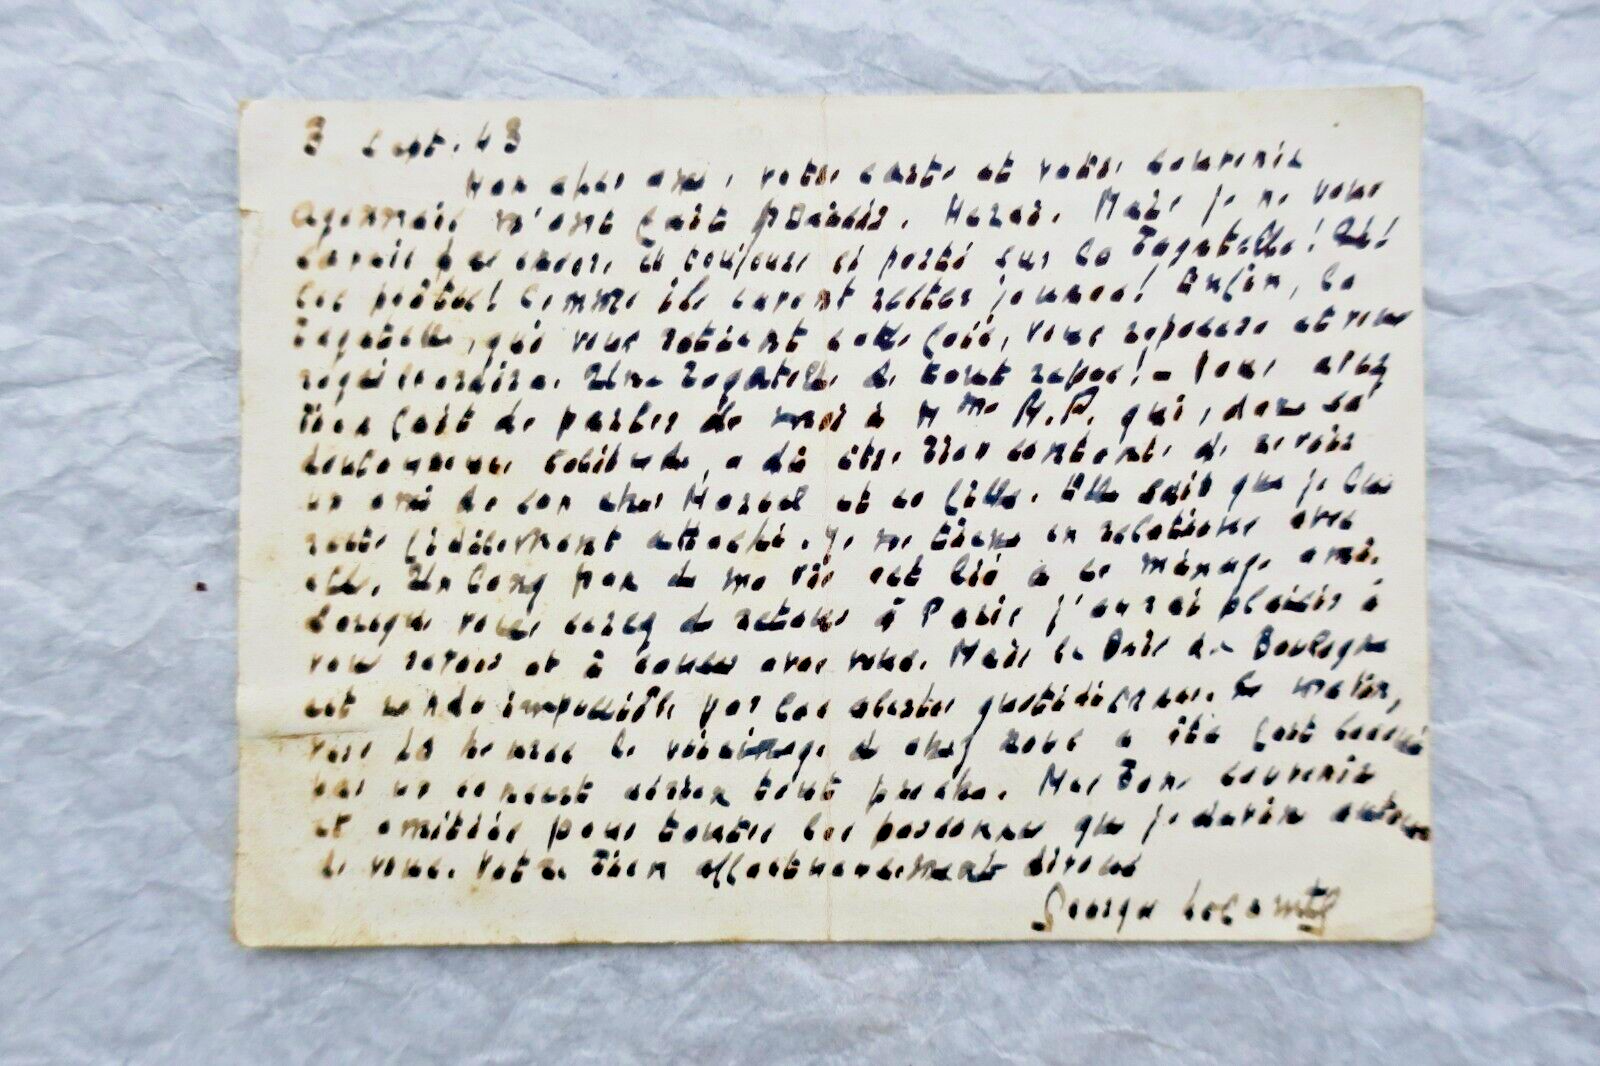 3 Sept. 43
Mon cher ami, votre carte et votre souvenir
agenais m'ont fait plaisir. Merci. Mais je ne vous
savais pas encore et toujours si porté sur la bagatelle! Ah!
ces poètes! Comme ils savent rester jeunes! Enfin, la
bagatelle, qui vous retient cette fois, vous reposera et vous
. Une bagatelle de tout repos! - Vous avez
bien fait de parler de moi à Mme M.P. qui, dans sa
douloureuse solitude, a dû être bien contente de revoir
un ami de son cher Marcel et sa fille. Elle sait que je lui
reste fidèlement attaché. Je me tiens en relations avec
elle. Un long pan de ma vie est lié à ce ménage ami.
Lorsque vous serez de retour à Paris j'aurai plaisir à
vous revoir et à causer avec vous. Mais le Bois de Boulogne
est rendu impossible par les alertes quotidiennes. Ce matin,
vers 10 heures le voisinage de chez nous a été fort secoué
par un concert aérien tout proche. Mes bons souvenirs
et amitiés pour toutes les personnes que je devine autour
de vous. Votre bien affectueusement dévoué
Georges Lecomte